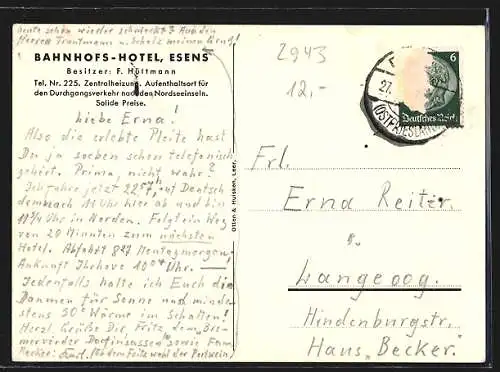 heute schon wieder schmeckt? Auch den
Herren Trautmann u. Scholz meinen Gruß!
BAHNHOFS-HOTEL, ESENS
Besitzer: F. Hüttmann
Tel. Nr. 225. Zentralheizung. Aufenthaltsort für
den Durchgangsverkehr nach den Nordseeinseln.
Solide Preise.
Liebe Erna!
Also die erlebte Pleite hast
Du ja soeben schon telefonisch
gehört. Prima, nicht wahr?
Ich fahre jetzt 22
demnach 11 Uhr hier ab und bin
in Norden. Folgt ein Weg
von 20 Minuten zum nächsten
Hotel. Abfahrt 827 Montagmorgen,
Ankunft Ihrhove Uhr.
Jedenfalls halte ich Euch die
Daumen für Sonne und minde
stens 30° Wärme im Schatten!
Herzl. Grüße Dir, Fritz, dem „Bre-
mervörder Dorfinsassen" sowie Fam.
Becker:
Otten & Huisken, Leer.
2943
12,-
6
Deutsches Reich
27.
(OSTFRIESLAND)
Frl.
Erna Reiter.
Langeoog.
Hindenburgstr.
Haus „Becker."